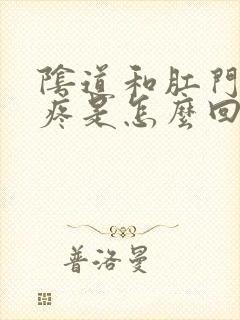 陰道和肛門
疼是怎麼回
普洛曼